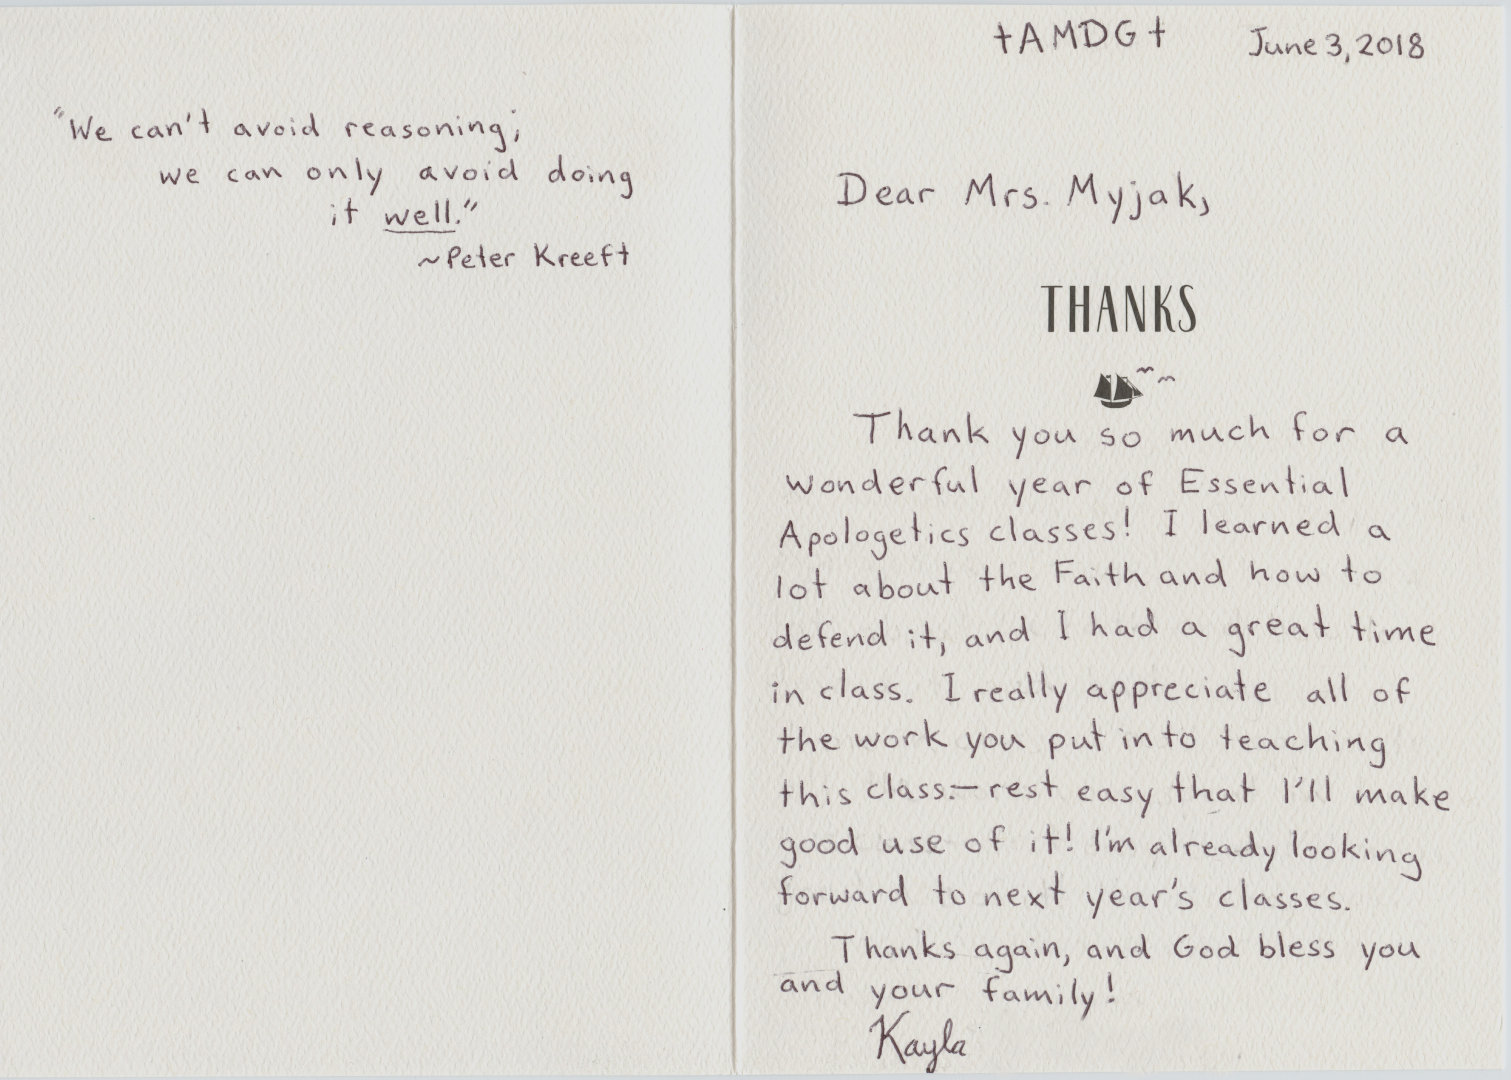 "We can't avoid reasoning;
we can only avoid doing
it well."
~Peter Kreeft
†AMDG†
June 3, 2018
Dear Mrs. Myjak,
THANKS
Thank you so much for a
wonderful year of Essential
Apologetics classes! I learned a
lot about the Faith and how to
defend it, and I had a great time
in class. I really appreciate all of
the work you put into teaching
this class.—rest easy that I'll make
good use of it! I'm already looking
forward to next year's classes.
Thanks again, and God bless you
and your family!
Kayla